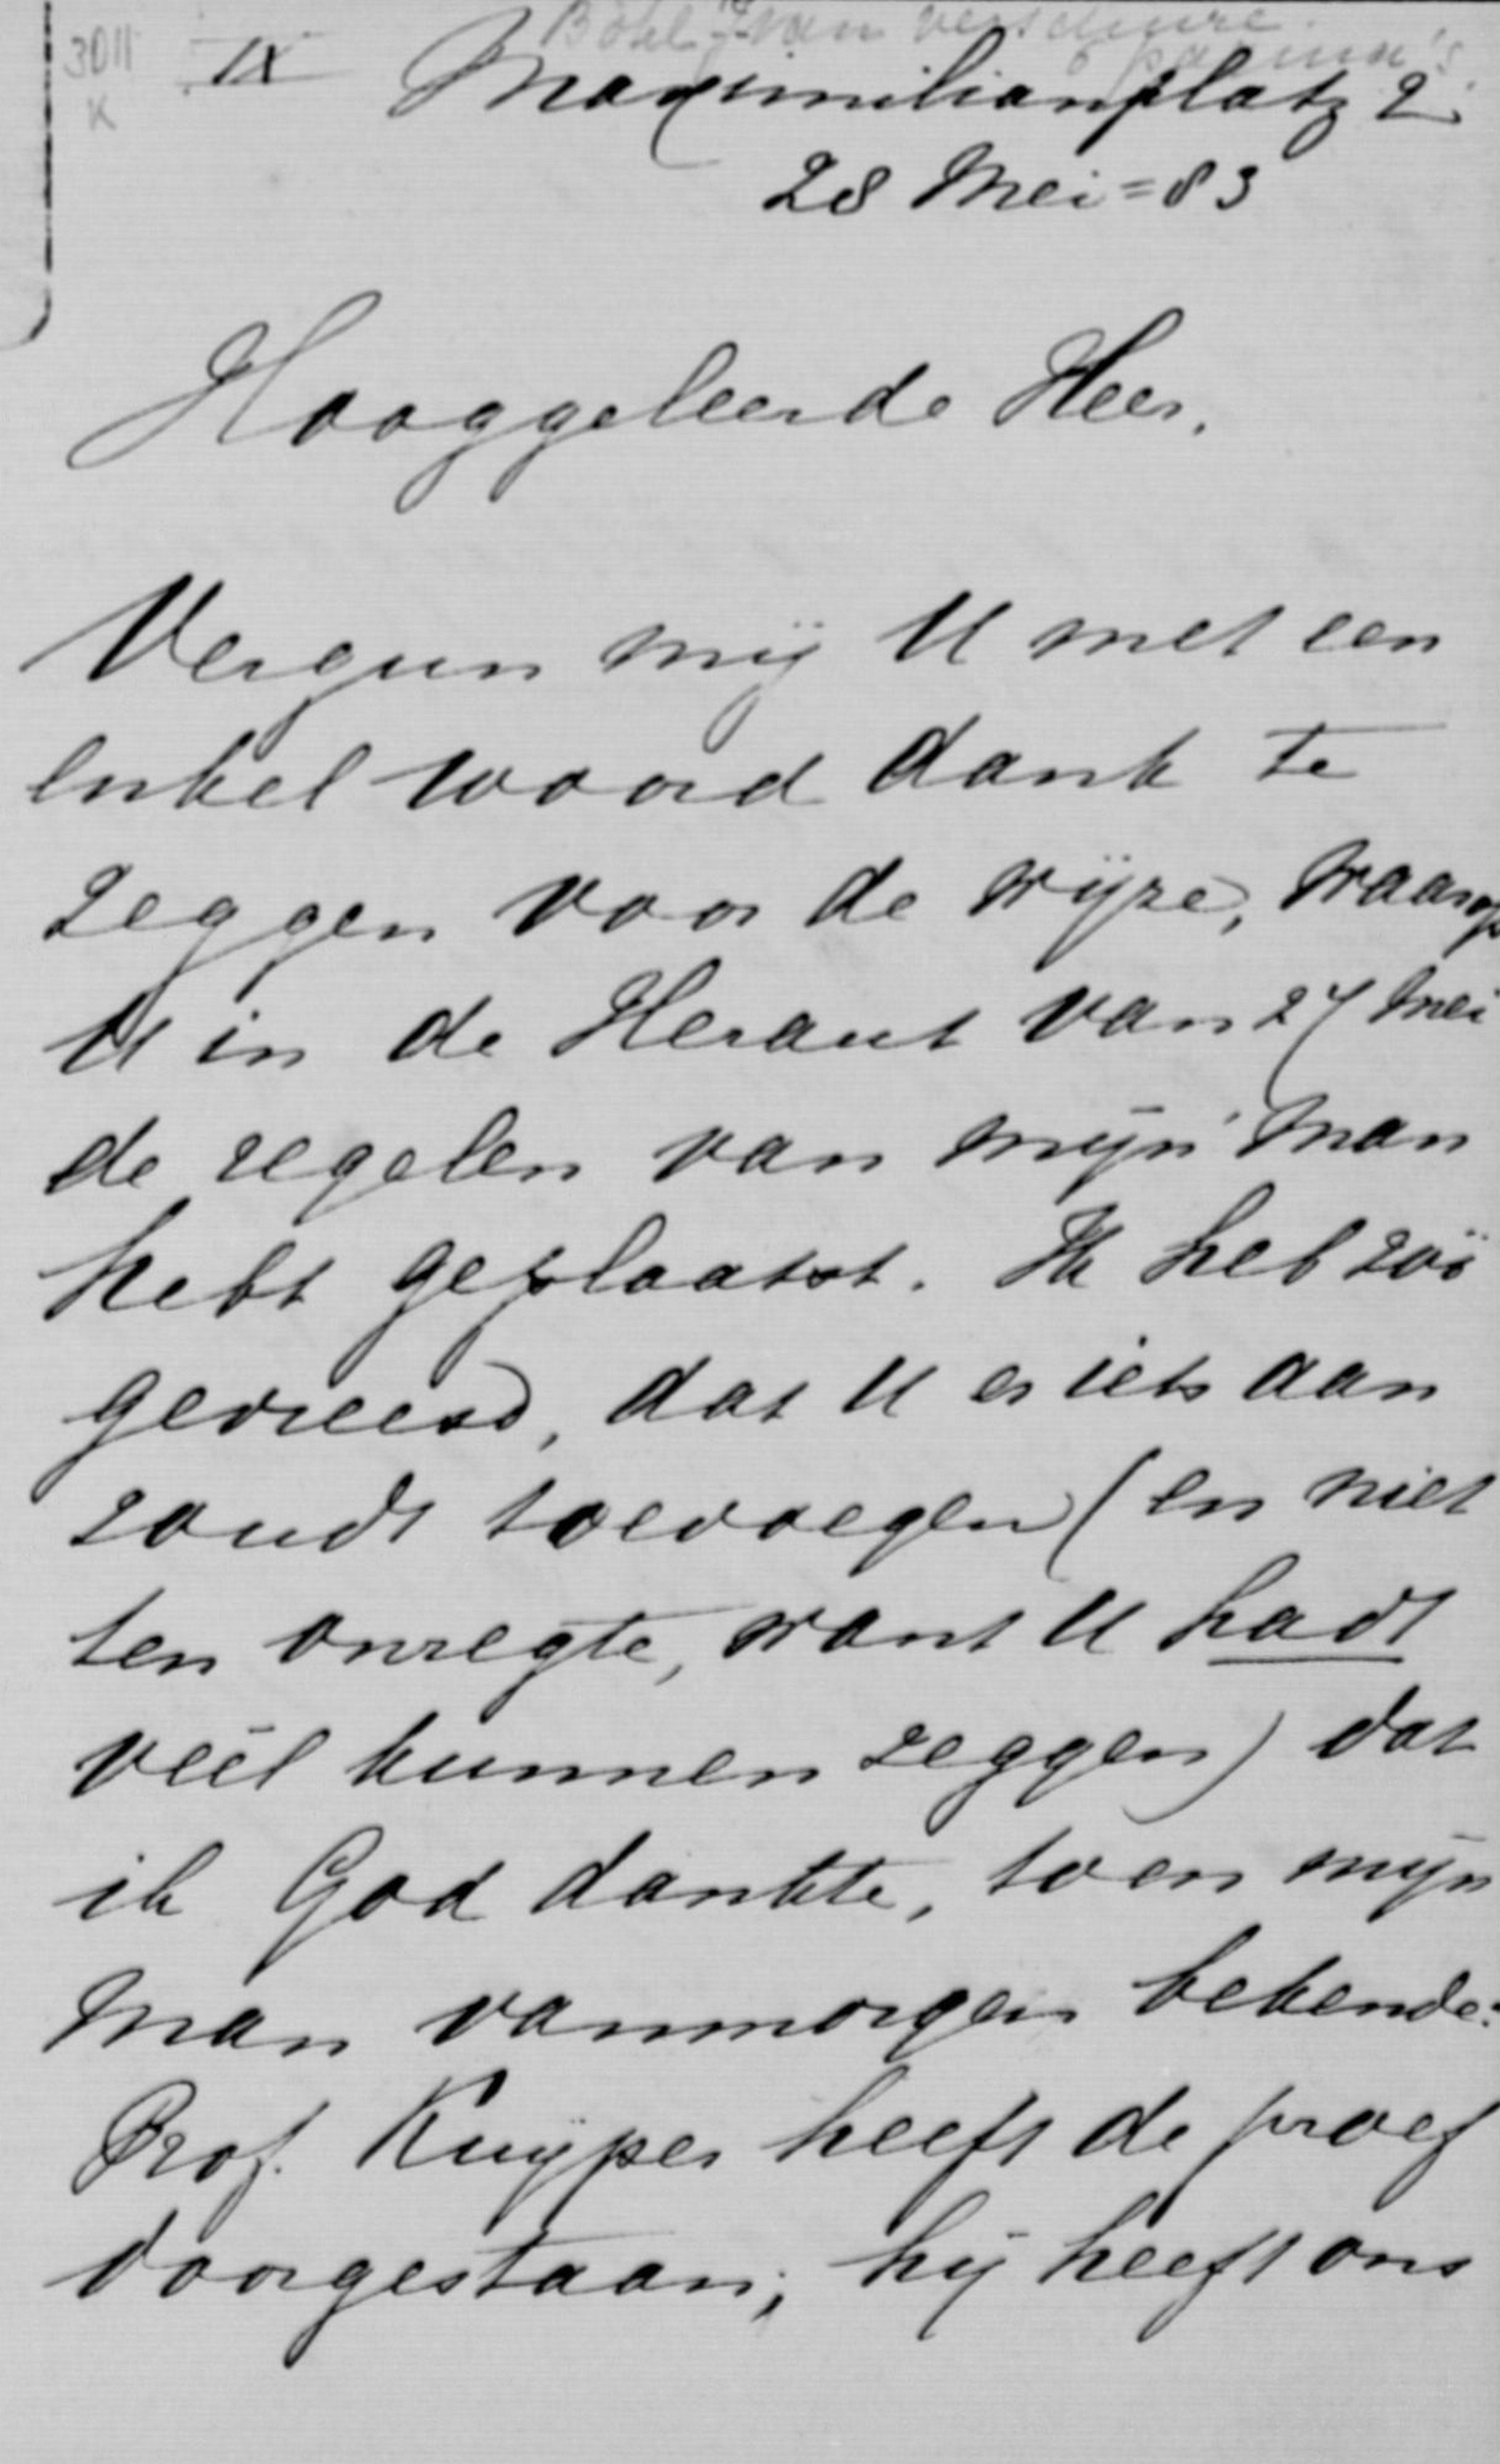 Böhl-van Verschuire.
6 pagina's
3011
K
IX Maximilianplatz 2.
28 Mei = 83
Hooggeleerde Heer,
Vergun mij U met een
enkel woord dank te
zeggen voor de wijze, waarop
U in de Heraut van 27 Mei
de regelen van mijn man
hebt geplaatst. Ik heb zóó
gevreesd, dat U er iets aan
zoudt toevoegen (en niet
ten onregte, want U hadt
veel kunnen zeggen) dat
ik God dankte, toen mijn
man vanmorgen bekende:
Prof. Kuyper heeft de proef
doorgestaan; hij heeft ons